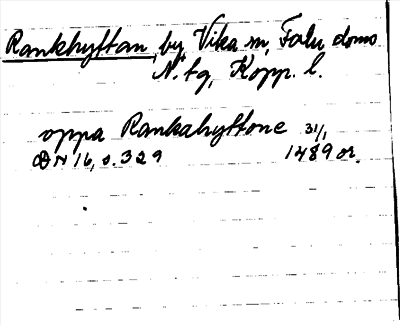 Rankhyttan, by, Vika sn, Falu doms.
N. tg, Kopp. l.
oppa Rankahyttone 31/1
DN 16, s. 329 1489 or.